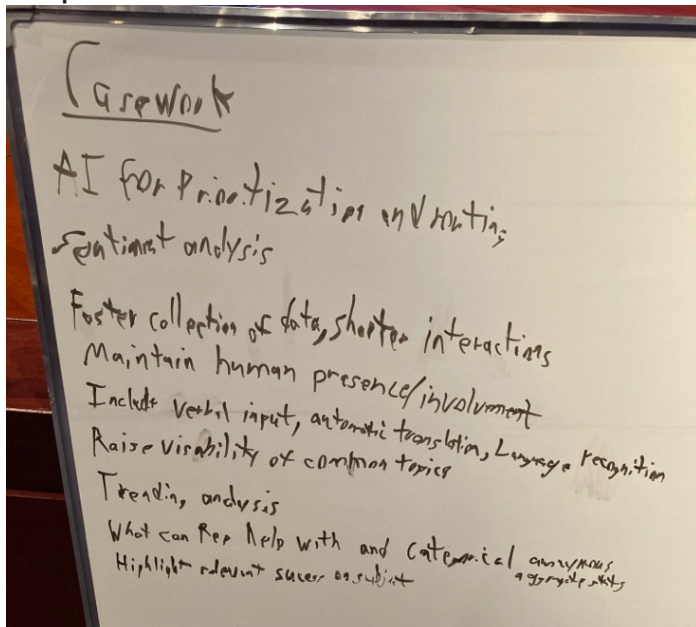 Casework
AI for Prioritization and routing
sentiment analysis
Faster collection of data, shorter interactions
Maintain human presence/involvment
Include verbal input, automatic translation, Language recognition
Raise visability of common topics
Trending analysis
What can Rep help with and categorical anonymous
aggregate stats
Highlight relevant success on subject